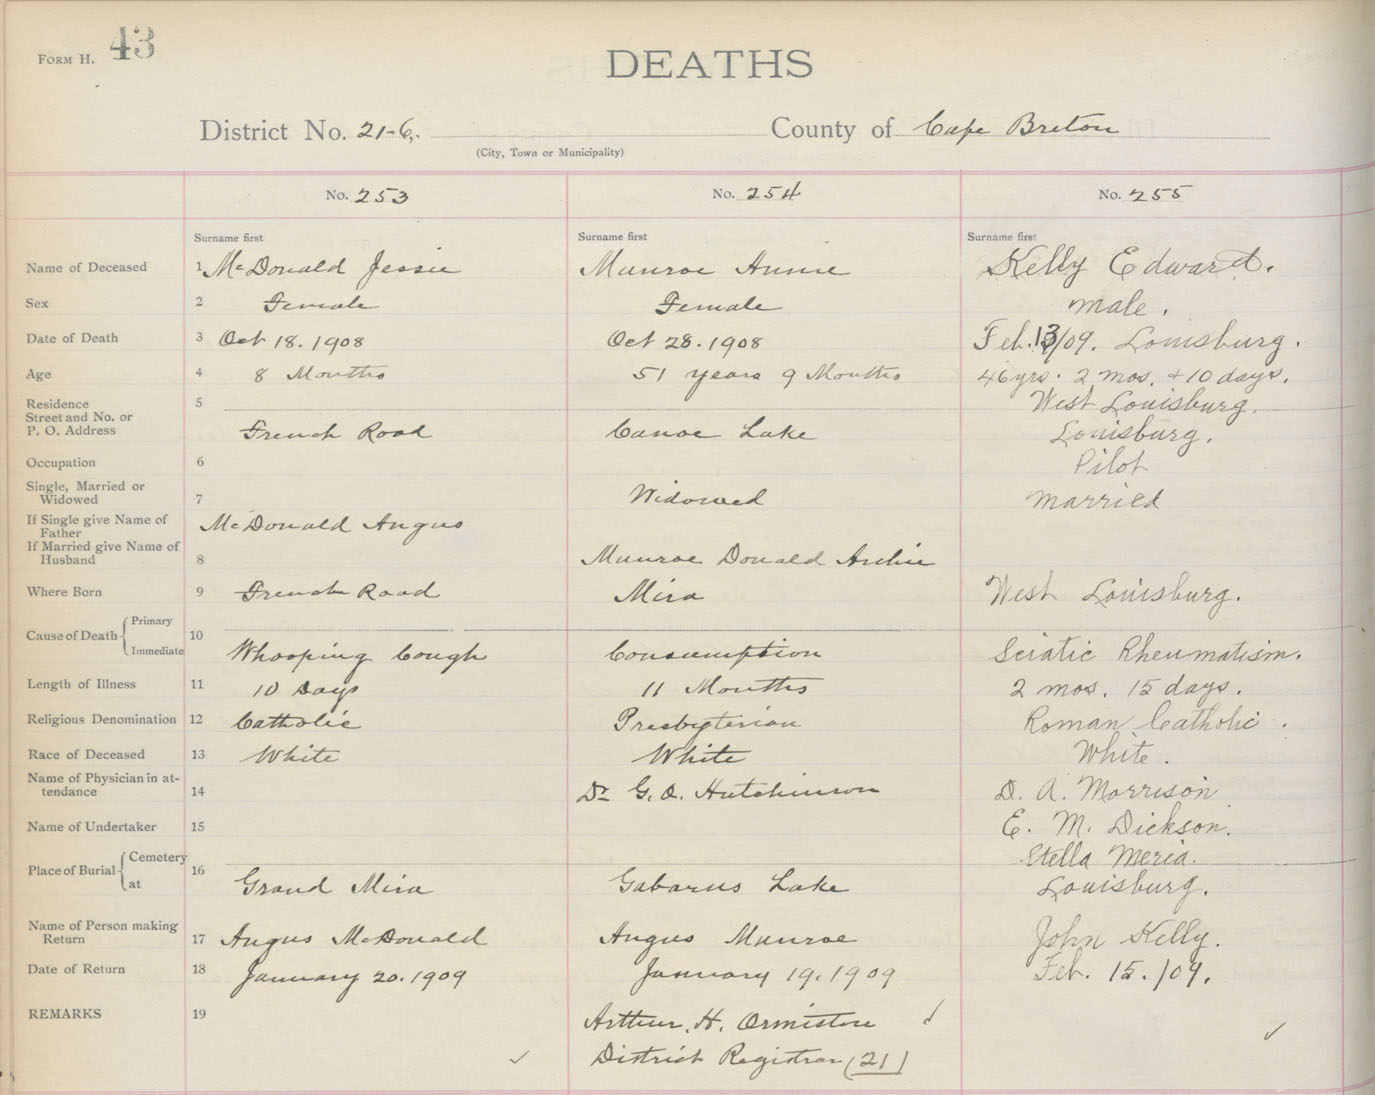 FORM H. 43
DEATHS
District No. 21-6. County of Cape Breton
(City, Town or Municipality)
No. 253 No. 254 No. 255
Surname first Surname first Surname first
Name of Deceased 1 McDonald Jessie Munroe Annie Kelly Edward.
Sex 2 Female Female male.
Date of Death 3 Oct 18. 1908 Oct 28. 1908 Feb. 13/09. Louisburg.
Age 4 8 Months 51 years 9 Months 46 yrs. 2 mos. + 10 days.
Residence 5 West Louisburg.
Street and No. or
P. O. Address French Road Canoe Lake Louisburg.
Occupation 6 Pilot
Single, Married or
Widowed 7 Widowed married
If Single give Name of
Father McDonald Angus
If Married give Name of
Husband 8 Munroe Donald Archie
Where Born 9 French Road Mira West Louisburg.
Cause of Death Primary 10
Immediate Whooping Cough Consumption Sciatic Rheumatism.
Length of Illness 11 10 Days 11 Months 2 mos. 15 days.
Religious Denomination 12 Catholic Presbyterian Roman Catholic.
Race of Deceased 13 White White White.
Name of Physician in at-
tendance 14 Dr G. O. Hutchinson D. A. Morrison
Name of Undertaker 15 E. M. Dickson.
Place of Burial Cemetery 16 Stella Meria.
at Grand Mira Gabarus Lake Louisburg.
Name of Person making
Return 17 Angus McDonald Angus Munroe John Kelly.
Date of Return 18 January 20. 1909 January 19. 1909 Feb. 15./09.
REMARKS 19 Arthur. H. Ormiston
District Registrar (21)